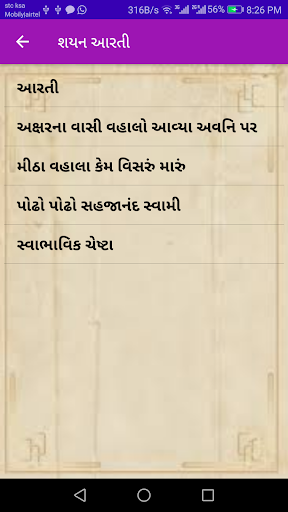 stc ksa
Mobily|airtel 316B/s 56% 8:26 PM
શયન આરતી
આરતી
અક્ષરના વાસી વહાલો આવ્યા અવનિ પર
મીઠા વહાલા કેમ વિસરું મારું
પોઢો પોઢો સહજાનંદ સ્વામી
સ્વાભાવિક ચેષ્ટા